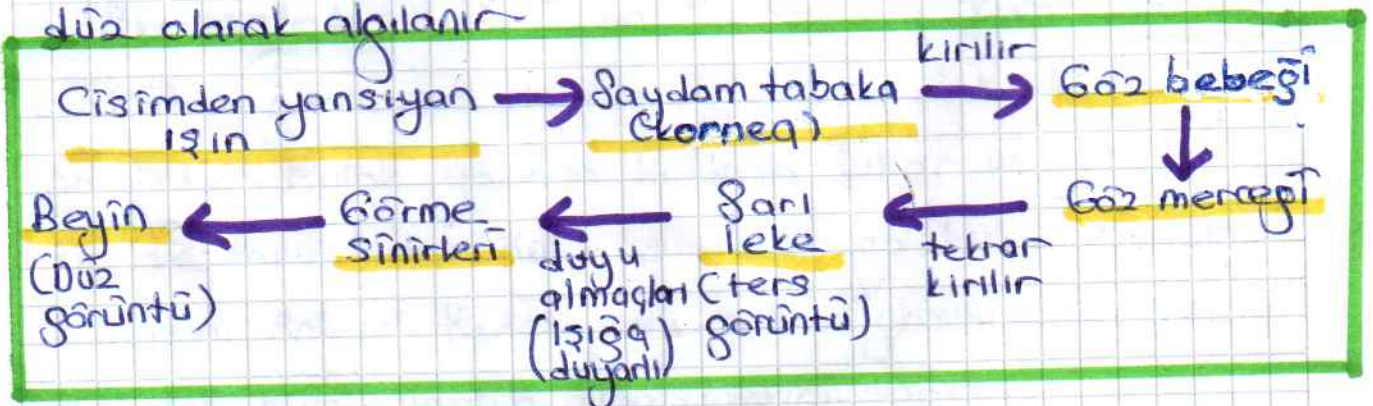 düz olarak algılanır
Cisimden yansıyan ışın
Saydam tabaka (kornea)
kırılır
Göz bebeği
Göz merceği
tekrar kırılır
Sarı leke
(ters görüntü)
duyu almaçları
(ışığa duyarlı)
Görme sinirleri
Beyin
(Düz görüntü)